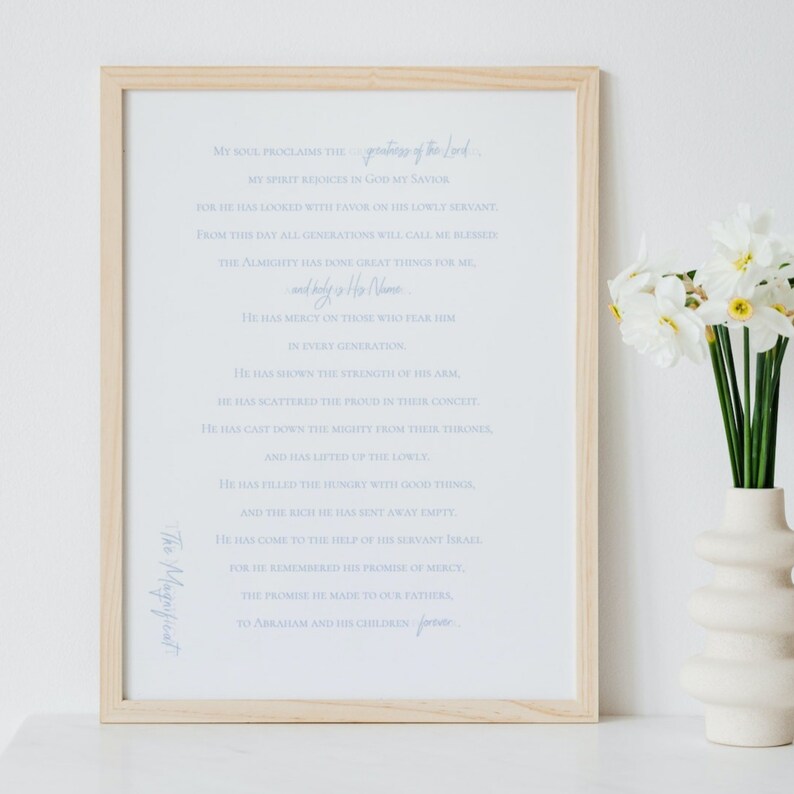 My soul proclaims the greatness of the Lord,
my spirit rejoices in God my Savior
for he has looked with favor on his lowly servant.
From this day all generations will call me blessed:
the Almighty has done great things for me,
and holy is His Name.
He has mercy on those who fear him
in every generation.
He has shown the strength of his arm,
he has scattered the proud in their conceit.
He has cast down the mighty from their thrones,
and has lifted up the lowly.
He has filled the hungry with good things,
and the rich he has sent away empty.
He has come to the help of his servant Israel
for he remembered his promise of mercy,
the promise he made to our fathers,
to Abraham and his children forever.
The Magnificat